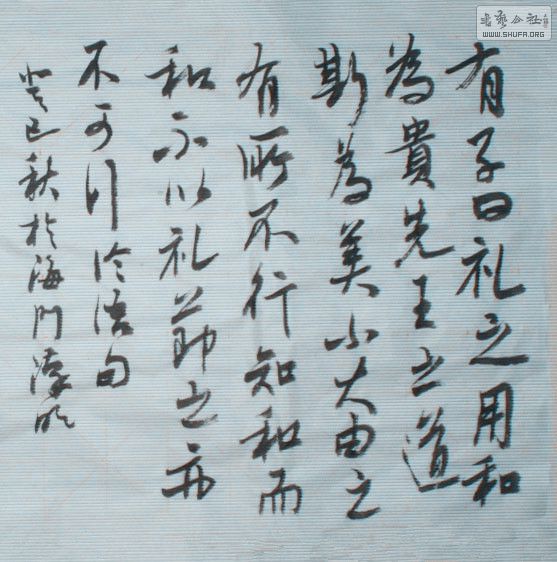 有子曰礼之用和
为贵先王之道
斯为美小大由之
有所不行知和而
和不以礼节之亦
不可行 论语句
癸巳秋于海门
书艺公社
WWW.SHUFA.ORG